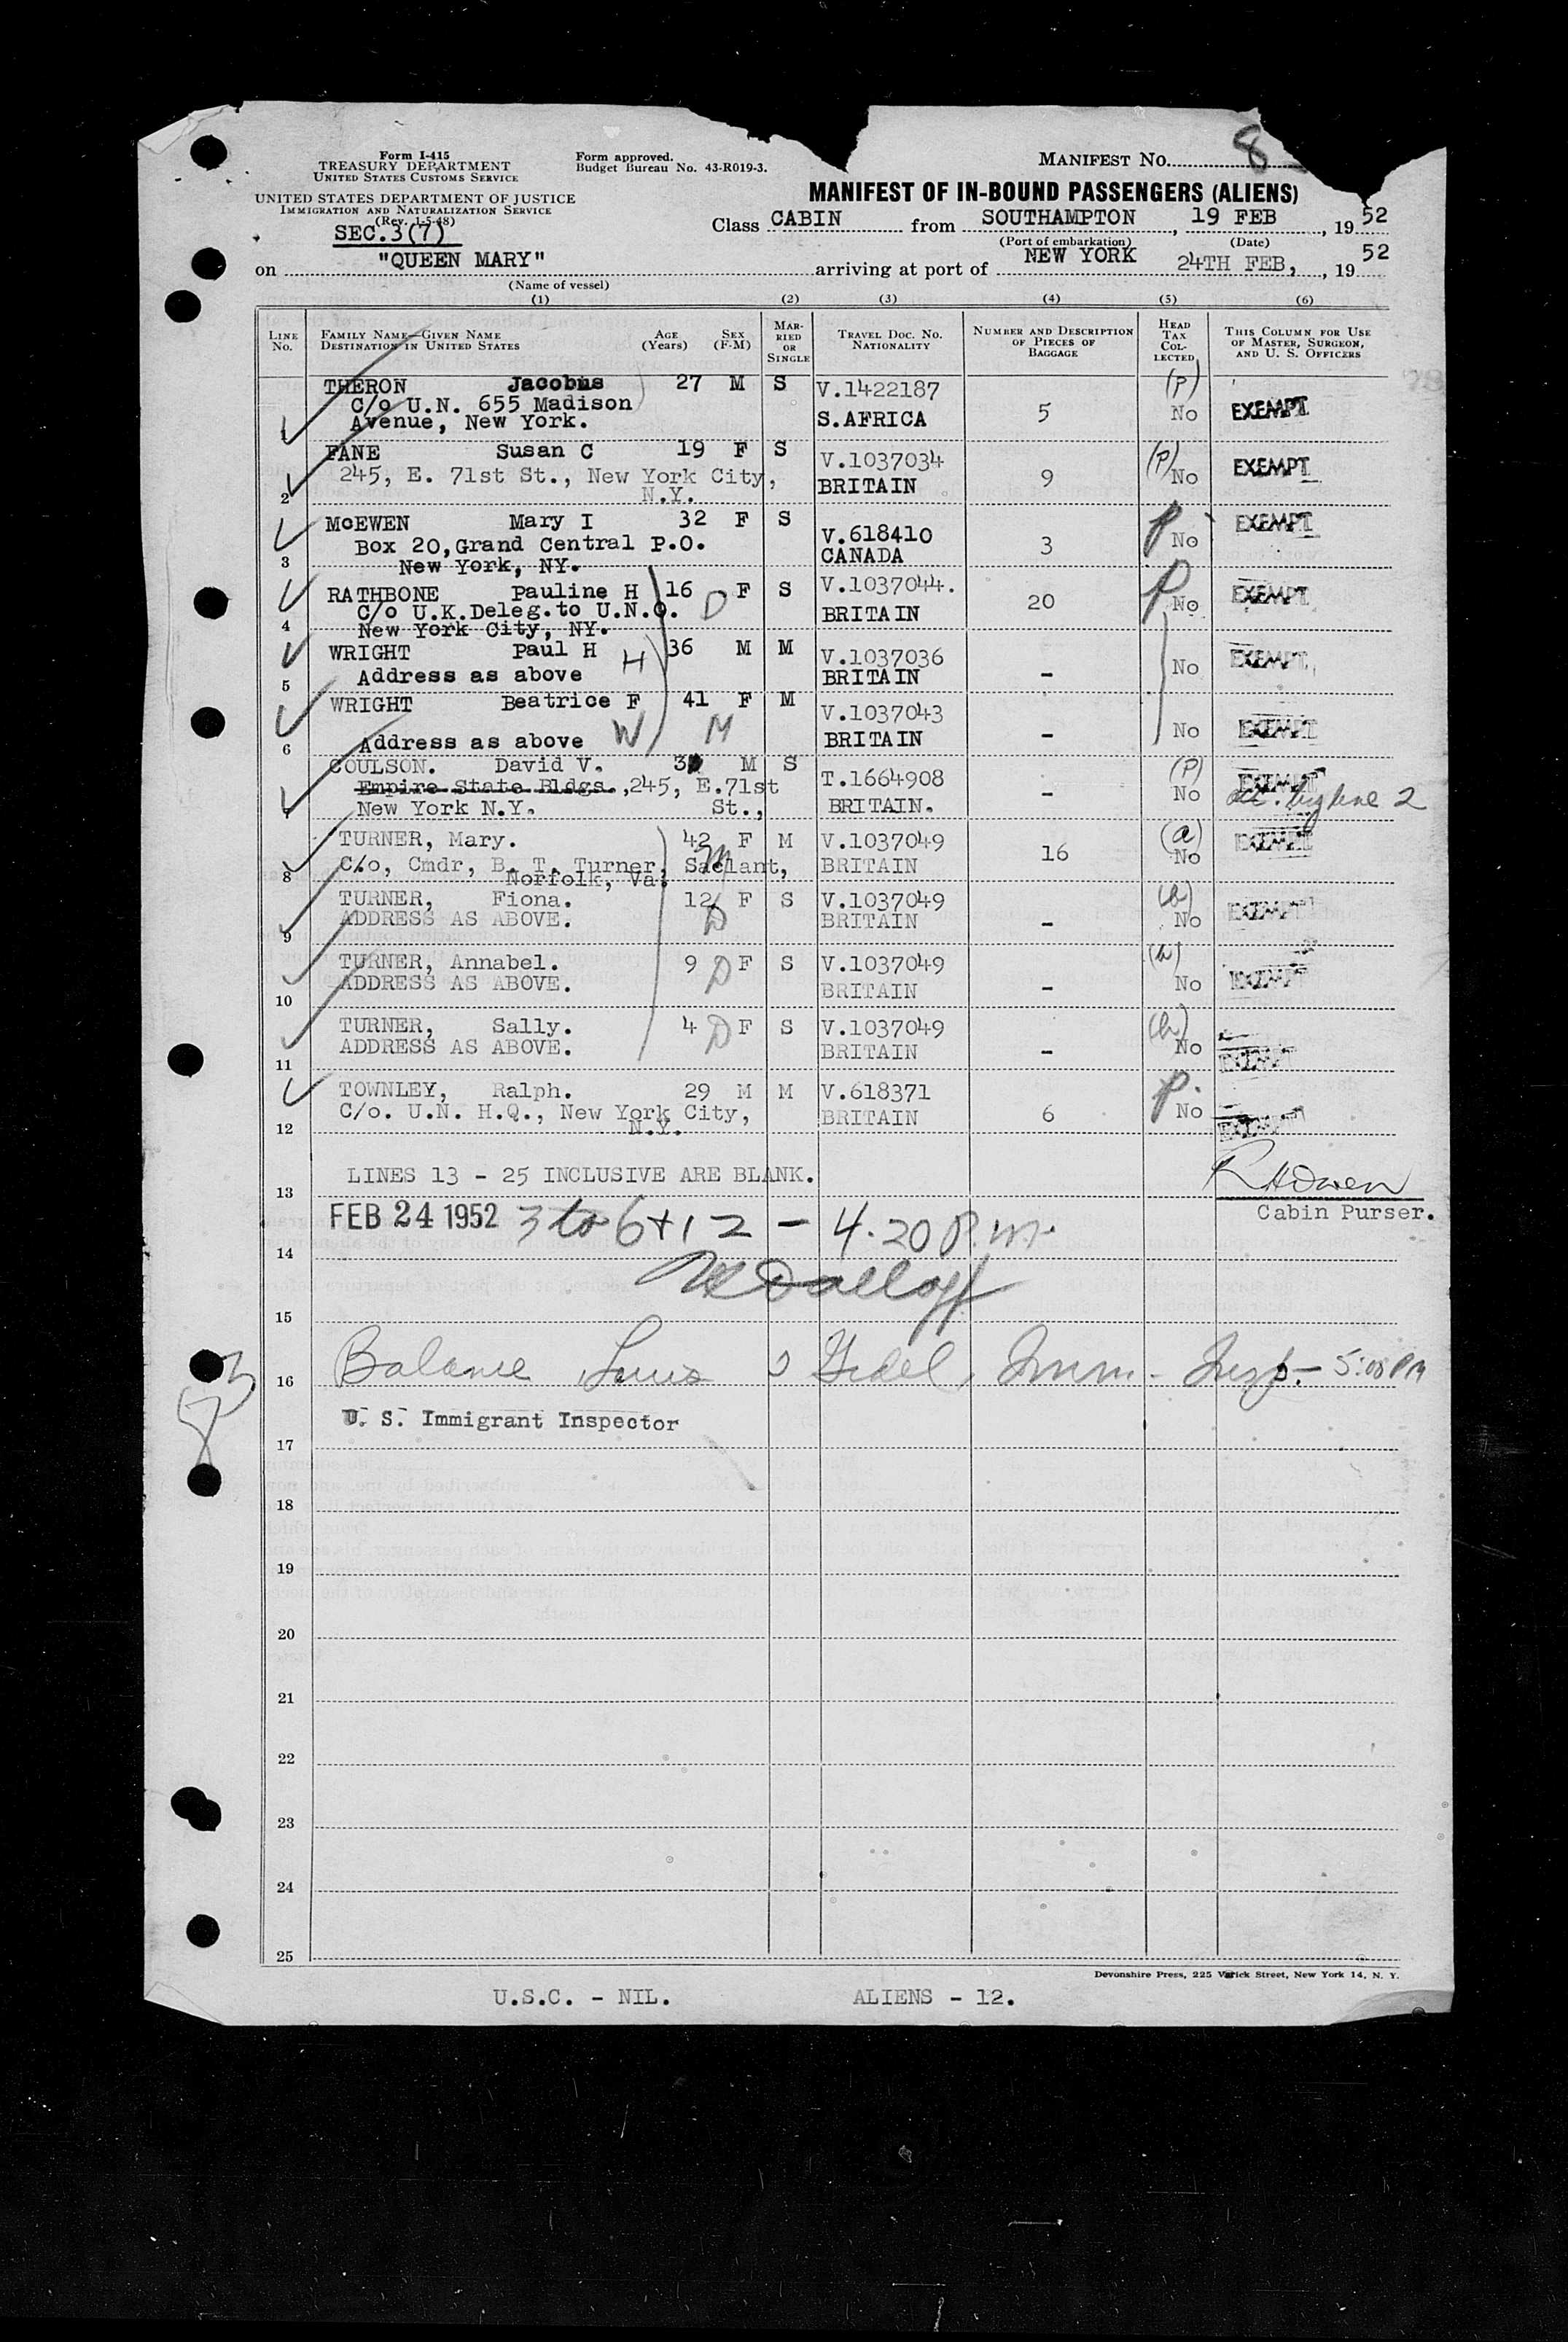 8
Form I-415
TREASURY DEPARTMENT
UNITED STATES CUSTOMS SERVICE
Form approved.
Budget Bureau No. 43-R019-3.
MANIFEST NO.
UNITED STATES DEPARTMENT OF JUSTICE
IMMIGRATION AND NATURALIZATION SERVICE
(Rev. 1-5-48)
SEC.3(7)
MANIFEST OF IN-BOUND PASSENGERS (ALIENS)
Class CABIN from SOUTHAMPTON, 19 FEB, 1952
(Port of embarkation) (Date)
on "QUEEN MARY" arriving at port of NEW YORK 24TH FEB, , 1952
(Name of vessel)
(1) (2) (3) (4) (5) (6)
LINE No. FAMILY NAME—GIVEN NAME DESTINATION IN UNITED STATES AGE (Years) SEX (F-M) MARRIED OR SINGLE TRAVEL DOC. NO. NATIONALITY NUMBER AND DESCRIPTION OF PIECES OF BAGGAGE HEAD TAX COLLECTED THIS COLUMN FOR USE OF MASTER, SURGEON, AND U. S. OFFICERS
THERON Jacobus 27 M S V.1422187 (P)
C/o U.N. 655 Madison S.AFRICA 5 No EXEMPT
1 Avenue, New York.
FANE Susan C 19 F S V.1037034 (P)
245, E. 71st St., New York City, BRITAIN 9 No EXEMPT
2 N.Y.
McEWEN Mary I 32 F S V.618410 P EXEMPT
Box 20,Grand Central P.O. CANADA 3 No
3 New York, NY.
RATHBONE Pauline H 16 D F S V.1037044. P EXEMPT
C/o U.K.Deleg.to U.N.O. BRITAIN 20 No
4 New York City, NY.
WRIGHT Paul H 36 M M V.1037036 EXEMPT
5 Address as above H BRITAIN - No
WRIGHT Beatrice F 41 F M V.1037043
6 Address as above W M BRITAIN - No EXEMPT
COULSON. David V. M S T.1664908 (P) EXEMPT
Empire State Bldgs.,245, E.71st - No line 2
7 New York N.Y. St., BRITAIN.
TURNER, Mary. 42 F M V.1037049 16 (a) EXEMPT
8 C/o, Cmdr, B. T. Turner, Saclant, BRITAIN No
Norfolk, Va.
TURNER, Fiona. 12 F S V.1037049 EXEMPT
9 ADDRESS AS ABOVE. D BRITAIN - No
TURNER, Annabel. 9 D F S V.1037049 EXEMPT
10 ADDRESS AS ABOVE. BRITAIN - No
TURNER, Sally. 4 D F S V.1037049
11 ADDRESS AS ABOVE. BRITAIN - No EXEMPT
TOWNLEY, Ralph. 29 M M V.618371 P.
C/o. U.N. H.Q., New York City, BRITAIN 6 No EXEMPT
12 N.Y.
13 LINES 13 - 25 INCLUSIVE ARE BLANK.
Cabin Purser.
14 FEB 24 1952 3 to 6 + 12 - 4.20 P.m.
15
16 Balance Imm. Insp. - 5:00 PM
U. S. Immigrant Inspector
17
18
19
20
21
22
23
24
25
Devonshire Press, 225 Varick Street, New York 14, N. Y.
U.S.C. - NIL. ALIENS - 12.